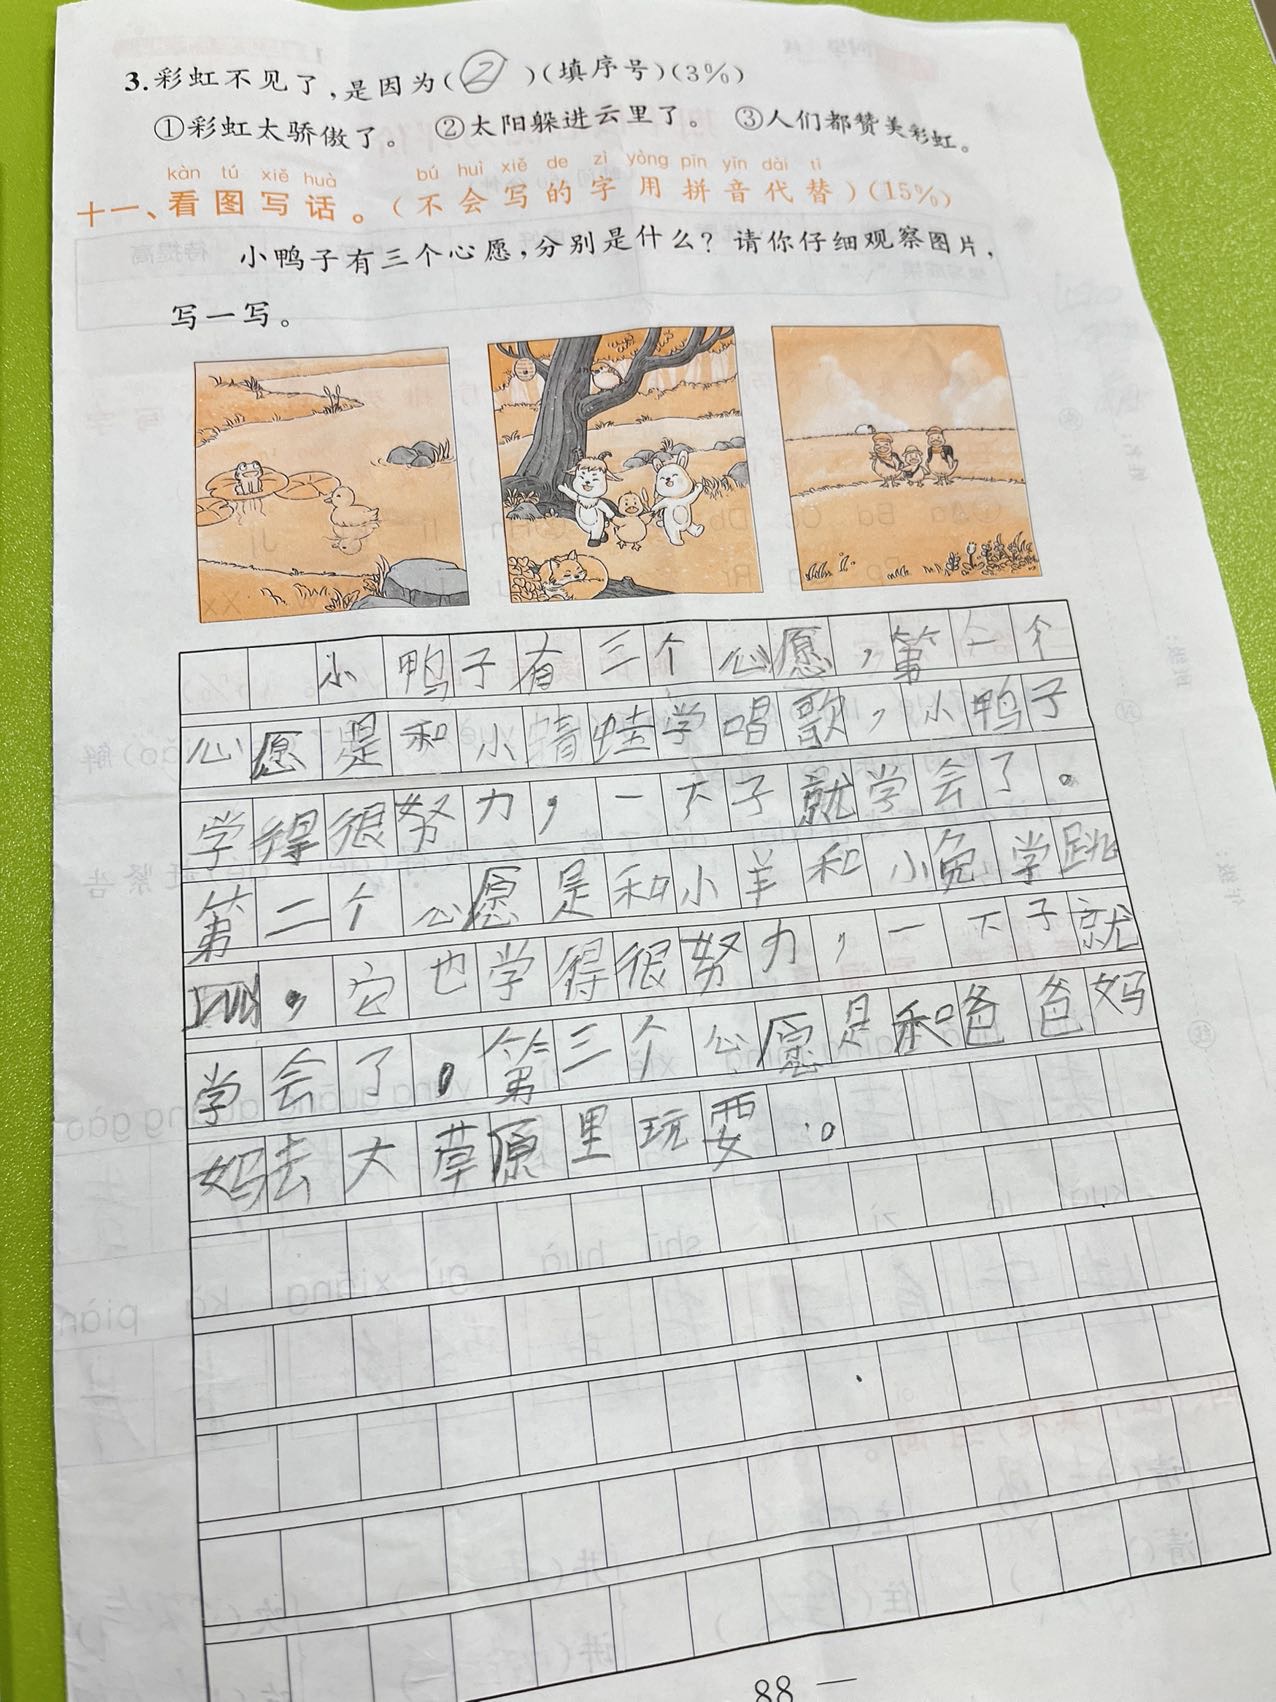 3.彩虹不见了,是因为(②)(填序号)(3%)
①彩虹太骄傲了。 ②太阳躲进云里了。 ③人们都赞美彩虹。
kàn tú xiě huà bú huì xiě de zì yòng pīn yīn dài tì
十一、看图写话。(不会写的字用拼音代替)(15%)
小鸭子有三个心愿,分别是什么?请你仔细观察图片,
写一写。
小鸭子有三个心愿,第一个
心愿是和小青蛙学唱歌,小鸭子
学得很努力,一下子就学会了。
第二个心愿是和小羊和小兔学跳
,它也学得很努力,一下子就
学会了。第三个心愿是和爸爸妈
妈去大草原里玩耍。
88 —